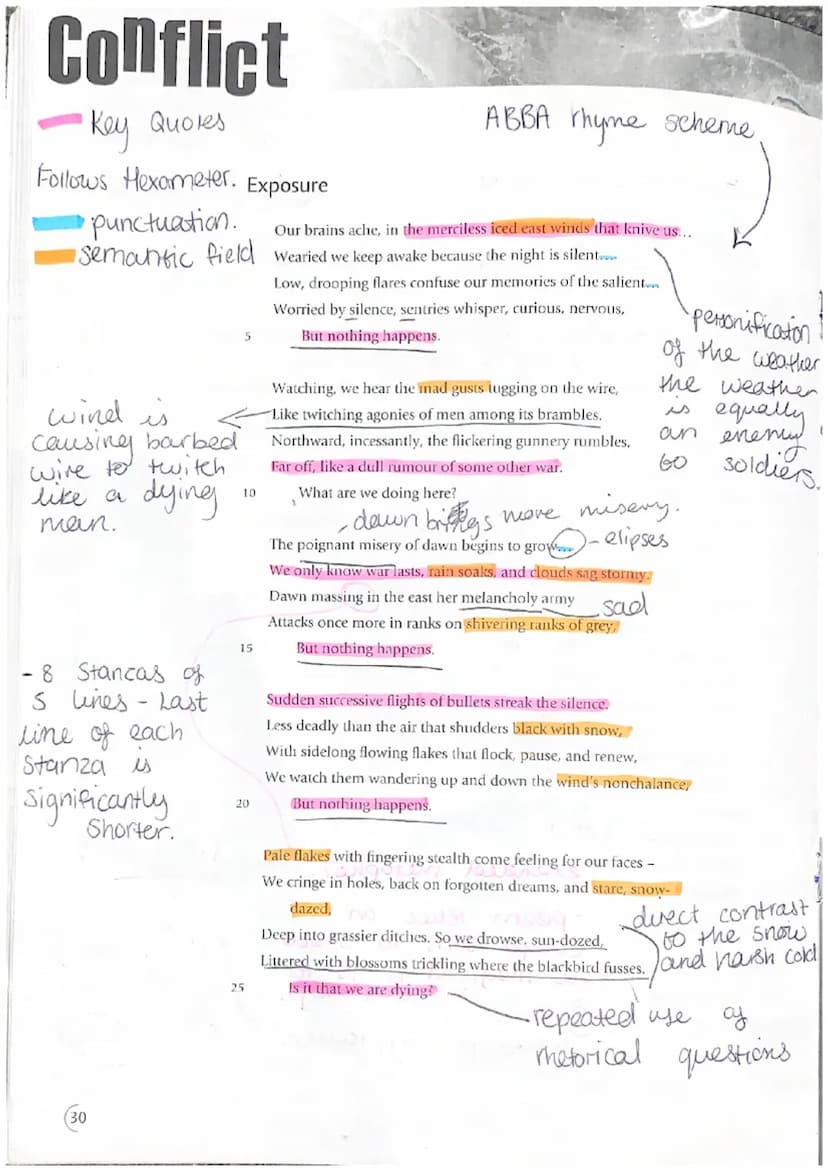 Conflict
Key Quotes
ABBA rhyme scheme
Follows Hexameter.
Exposure
punctuation.
semantic field
Our brains ache, in the merciless iced east winds that knive us...
Wearied we keep awake because the night is silent...
Low, drooping flares confuse our memories of the salient...
Worried by silence, sentries whisper, curious, nervous,
5 But nothing happens.
personification
of the weather
the weather
is equally
an enemy
to soldiers.
Watching, we hear the mad gusts tugging on the wire,
Like twitching agonies of men among its brambles.
Northward, incessantly, the flickering gunnery rumbles,
Far off, like a dull rumour of some other war.
10 What are we doing here?
wind is
causing barbed
wire to twitch
like a dying
man.
dawn brings more misery.
The poignant misery of dawn begins to grow...
- elipses
We only know war lasts, rain soaks, and clouds sag stormy.
Dawn massing in the east her melancholy army
sad
Attacks once more in ranks on shivering ranks of grey,
15 But nothing happens.
- 8 Stancas of
5 lines - Last
line of each
Stanza is
Significantly
Shorter.
Sudden successive flights of bullets streak the silence.
Less deadly than the air that shudders black with snow,
With sidelong flowing flakes that flock, pause, and renew,
We watch them wandering up and down the wind's nonchalance,
20 But nothing happens.
Pale flakes with fingering stealth come feeling for our faces –
We cringe in holes, back on forgotten dreams, and stare, snow-
dazed,
Deep into grassier ditches. So we drowse, sun-dozed,
Littered with blossoms trickling where the blackbird fusses.
25 Is it that we are dying?
direct contrast
to the snow
and harsh cold
repeated use of
rhetorical questions
30